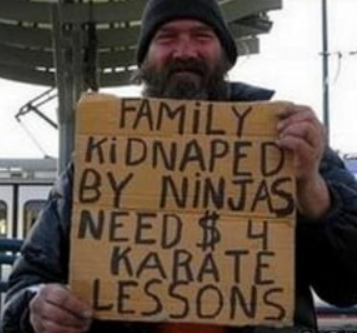 FAMiLY
KiDNAPED
BY NiNJAS
NEED $ 4
KARATE
LESSONS